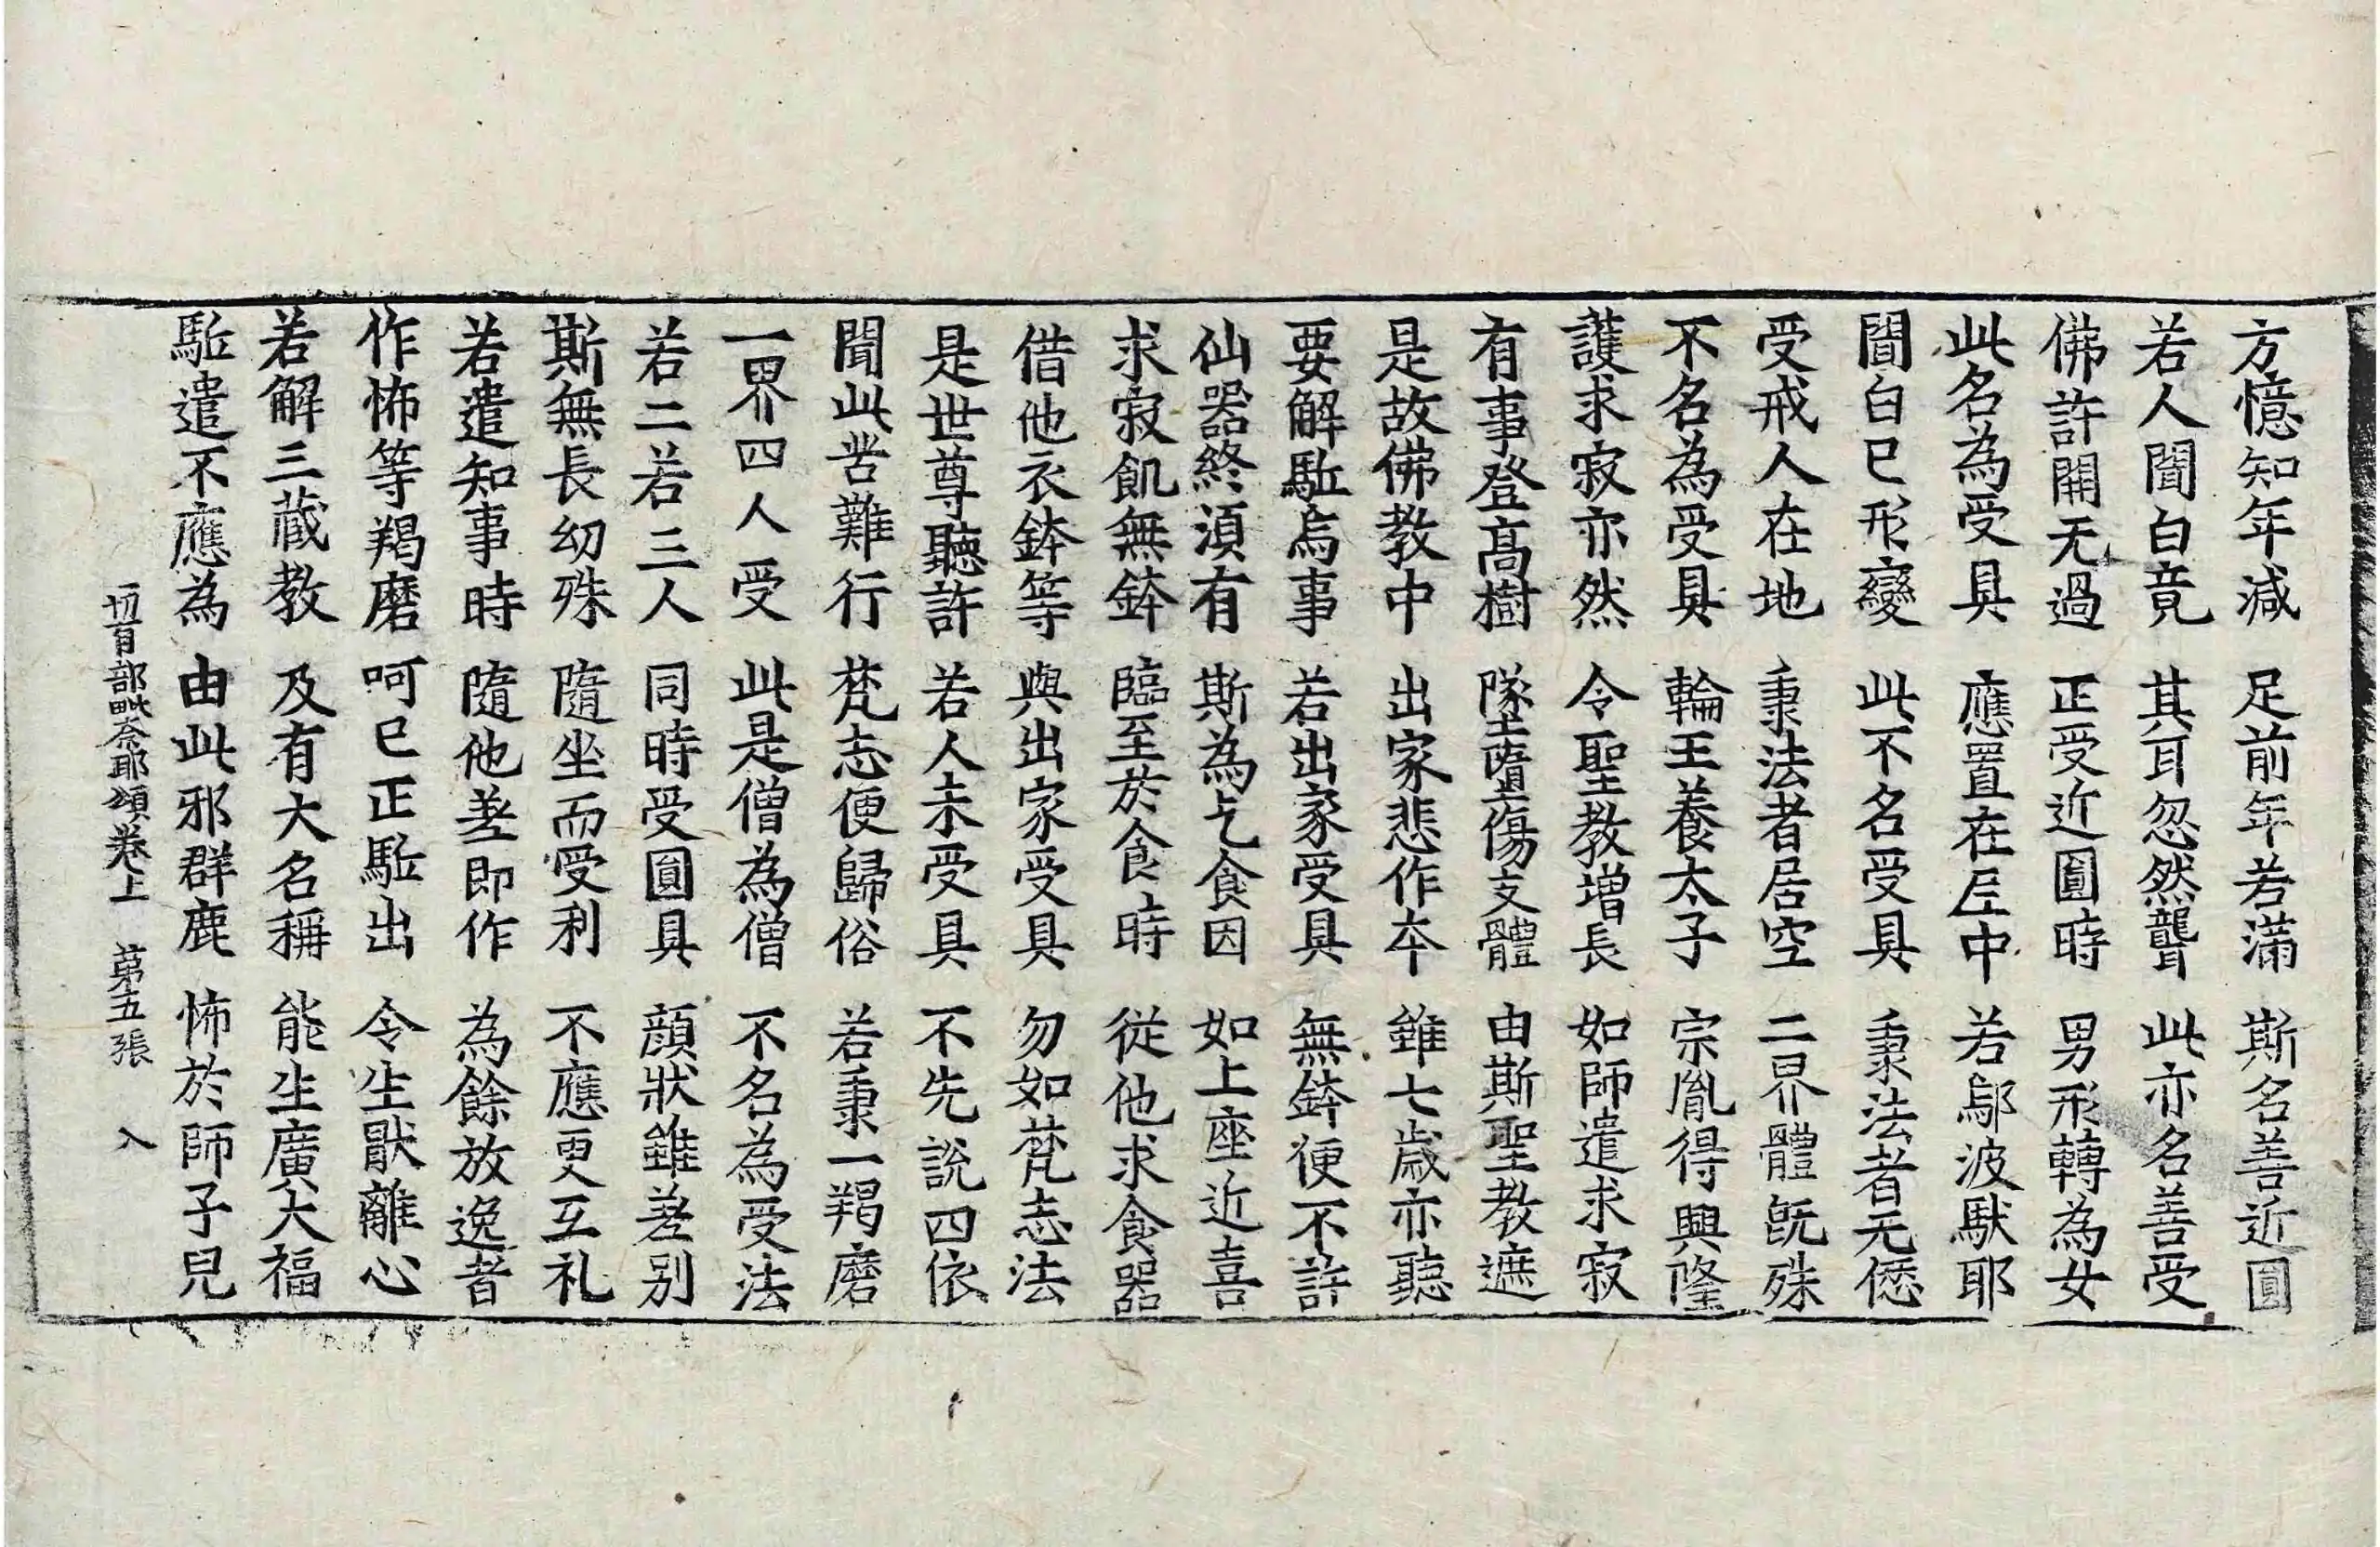 方憶知年減 足前年若滿 斯名善近圓
若人聞白竟 其耳忽然聾 此亦名善受
佛許開无過 正受近圓時 男形轉為女
此名為受具 應置在尼中 若鄔波馱耶
聞白已形變 此不名受具 秉法者无愆
受戒人在地 秉法者居空 二界體旣殊
不名為受具 輪王養太子 宗胤得興隆
護求寂亦然 令聖教增長 如師遣求寂
有事登高樹 墜墮傷支體 由斯聖教遮
是故佛教中 出家悲作本 雖七歲亦聽
要解駈烏事 若出家受具 無鉢便不許
仙器終湏有 斯為乞食因 如上座近喜
求寂飢無鉢 臨至於食時 從他求食器
借他衣鉢等 與出家受具 勿如梵志法
是世尊聽許 若人未受具 不先說四依
聞此苦難行 梵志便歸俗 若秉一羯磨
一界四人受 此是僧為僧 不名為受法
若二若三人 同時受圓具 顔狀雖差别
斯無長幼殊 隨坐而受利 不應更互礼
若遣知事時 隨他差即作 為餘放逸者
作怖等羯磨 呵已正駈出 令生猒離心
若解三藏教 及有大名稱 能生廣大福
駈遣不應為 由此邪群鹿 怖於師子兒
一切有部毗奈耶頌卷上 第五張 入